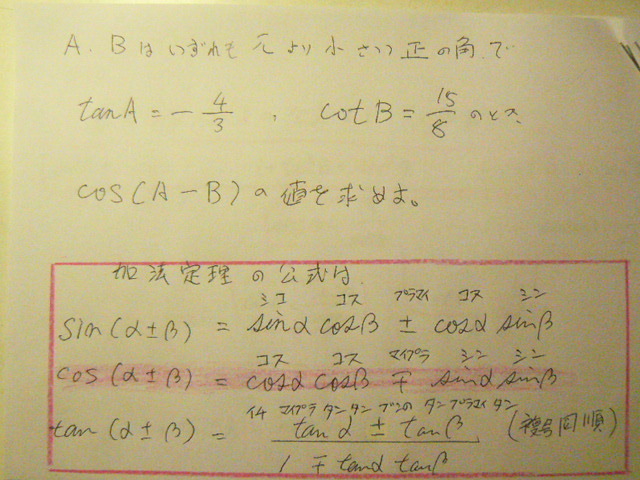 A. Bはいずれもπより小さい正の角で
tanA = - 4/3 , cotB = 15/8 のとき、
cos(A-B)の値を求めよ。
加法定理の公式は
シコ コス プラマイ コス シン
sin(α±β) = sinα cosβ ± cosα sinβ
コス コス マイプラ シン シン
cos(α±β) = cosα cosβ ∓ sinα sinβ
イチ マイプラ タン タン ブンの タン プラマイ タン
tan(α±β) = (tanα ± tanβ)/(1 ∓ tanα tanβ) (複号同順)